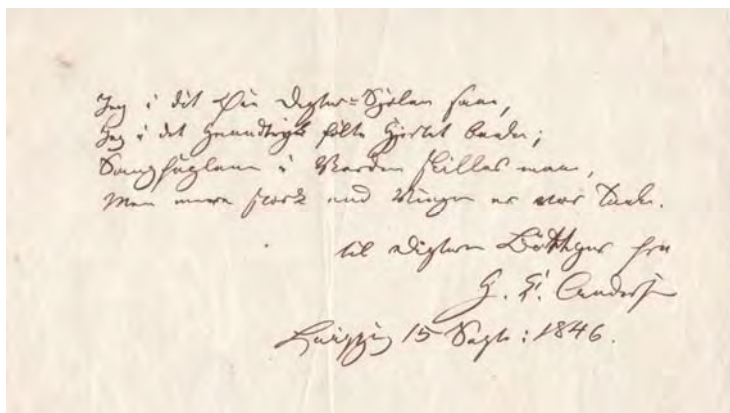 Jeg i dit Øie Digter=Sjælen saae,
Jeg i det Haandtryk følte Hjertet banke;
Sangfuglene i Verden skilles maae,
Men mere stærk end Vingen er vor Tanke.
til Digteren Böttger fra
H. C. Andersen
Leipzig 15 Sept: 1846.